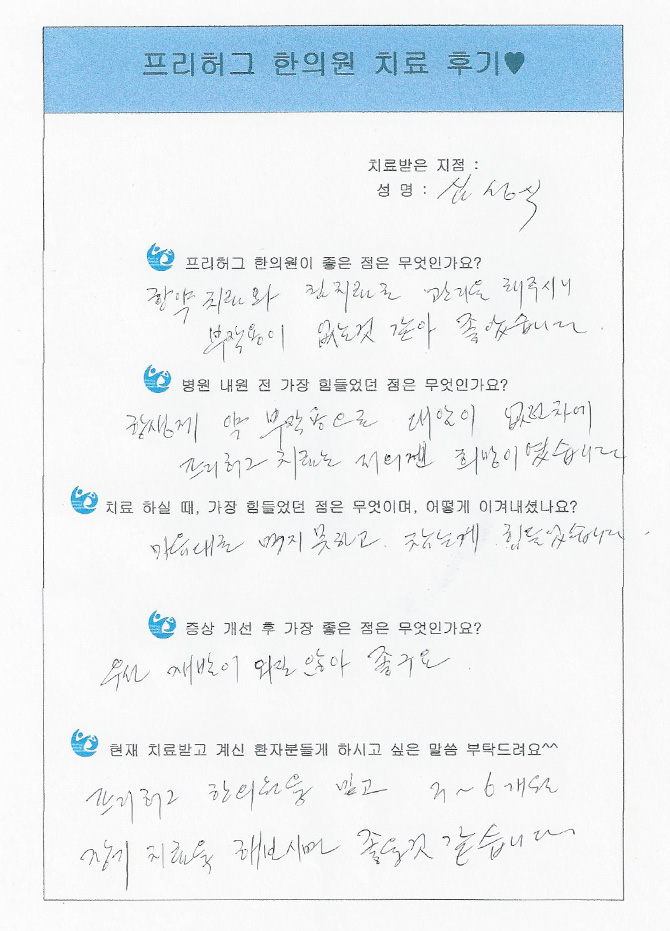 프리허그 한의원 치료 후기♥
치료받은 지점 :
성 명 : 심상식
프리허그 한의원이 좋은 점은 무엇인가요?
한약 치료와 침치료로 관리을 해주시니
부작용이 없는것 같아 좋았습니다.
병원 내원 전 가장 힘들었던 점은 무엇인가요?
항생제 약 부작용으로 대안이 없던차에
프리허그 치료는 저의겐 희망이였습니다
치료 하실 때, 가장 힘들었던 점은 무엇이며, 어떻게 이겨내셨나요?
마음대로 먹지 못하고. 참는게 힘들었습니다.
증상 개선 후 가장 좋은 점은 무엇인가요?
우선 재발이 되질 않아 좋거요.
현재 치료받고 계신 환자분들게 하시고 싶은 말씀 부탁드려요^^
프리허그 한의원을 믿고 ~6개월
장기 치료을 해보시면 좋을것 같습니다